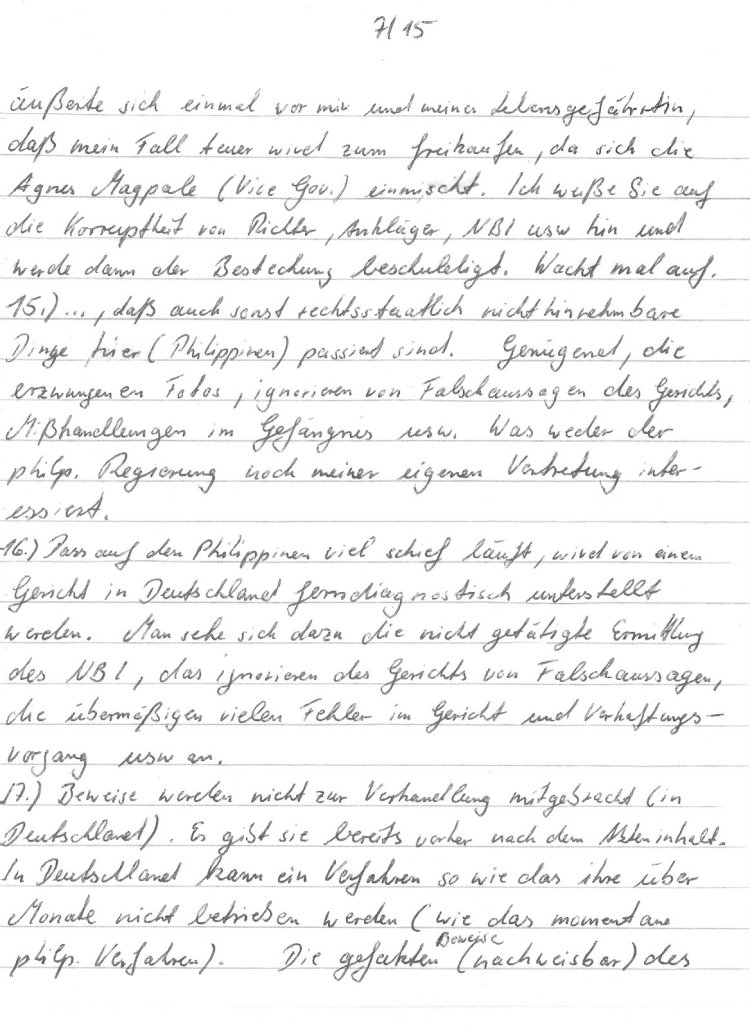 7/15
äußerte sich einmal vor mir und meiner Lebensgefährtin,
daß mein Fall teuer wird zum freikaufen, da sich die
Agnes Magpale (Vice Gov.) einmischt. Ich weiße Sie auf
die Korruptheit von Richter, Ankläger, NBI usw hin und
werde dann der Bestechung beschuldigt. Wacht mal auf.
15.) ..., daß auch sonst rechtsstaatlich nicht hinnehmbare
Dinge hier (Philippinen) passiert sind. Genügend, die
erzwungenen Fotos, ignorieren von Falschaussagen des Gerichts,
Mißhandlungen im Gefängnis usw. Was weder der
philp. Regierung noch meiner eigenen Vertretung inter-
essiert.
16.) Dass auf den Philippinen viel schief läuft, wird von einem
Gericht in Deutschland ferndiagnostisch unterstellt
werden. Man sehe sich dazu die nicht getätigte Ermittlung
des NBI, das ignorieren des Gerichts von Falschaussagen,
die übermäßigen vielen Fehler im Gericht und Verhaftungs-
vorgang usw an.
17.) Beweise werden nicht zur Verhandlung mitgebracht (in
Deutschland). Es gibt sie bereits vorher nach dem Akteninhalt.
In Deutschland kann ein Verfahren so wie das ihre über
Monate nicht betrieben werden (wie das momentane
philp. Verfahren). Die gefakten Beweise (nachweisbar) des